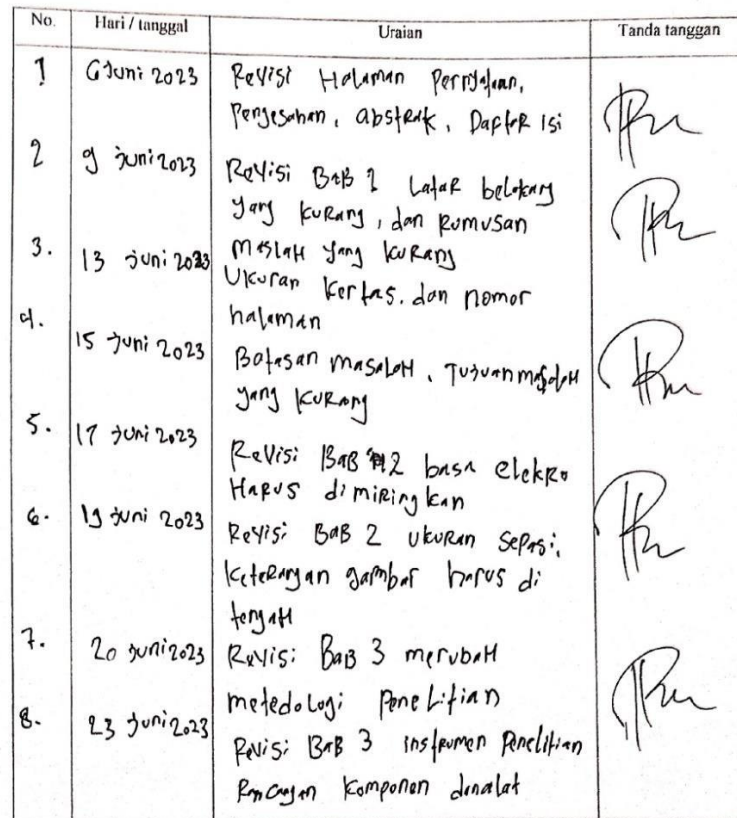 No. Hari / tanggal Uraian Tanda tanggan
1 6 Juni 2023 Revisi Halaman Pernyataan,
Pengesahan, abstrak, Daftar isi
2 9 juni 2023 Revisi BAB 1 Latar belakang
yang kurang, dan Rumusan
Maslah yang kurang
3. 13 juni 2023 Ukuran kertas. dan nomor
halaman
4. 15 juni 2023 Batasan masalah, Tujuan masalah
yang kurang
5. 17 juni 2023 Revisi BAB 2 basa elektro
Harus dimiringkan
6. 19 juni 2023 Revisi BAB 2 ukuran sepasi,
Keterangan gambar harus di
tengah
7. 20 juni 2023 Revisi BAB 3 merubah
metedologi penelitian
8. 23 juni 2023 Revisi BAB 3 instrumen penelitian
Rancangan komponen danalat